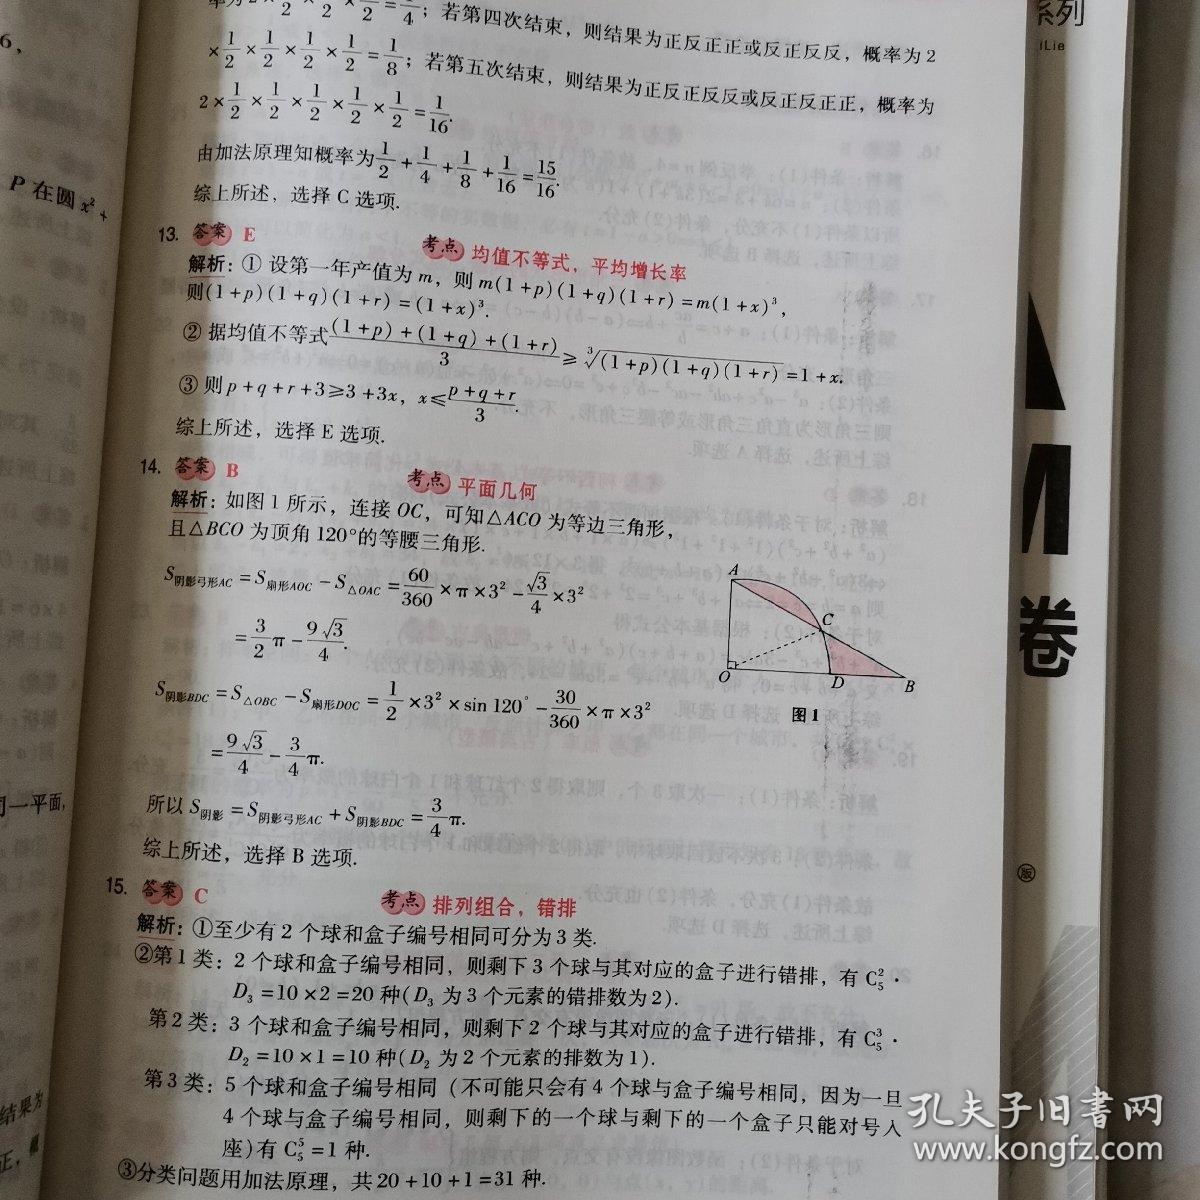 系列
iLie
6，
P 在圆 x² +
同一平面，
结果为
卷
版
率为2× 1/2 × 1/2 × 1/2 × 1/2 = 1/4；若第四次结束，则结果为正反正正或反正反反，概率为 2
× 1/2 × 1/2 × 1/2 × 1/2 = 1/8；若第五次结束，则结果为正反正反反或反正反正正，概率为
2× 1/2 × 1/2 × 1/2 × 1/2 × 1/2 = 1/16.
由加法原理知概率为 1/2 + 1/4 + 1/8 + 1/16 = 15/16.
综上所述，选择 C 选项.
13. 答案 E 考点 均值不等式，平均增长率
解析：① 设第一年产值为 m，则 m(1+p)(1+q)(1+r)=m(1+x)³，
则(1+p)(1+q)(1+r)=(1+x)³.
② 据均值不等式 (1+p)+(1+q)+(1+r)/3 ≥ ³√(1+p)(1+q)(1+r) =1+x.
③ 则 p+q+r+3≥3+3x，x≤ p+q+r/3.
综上所述，选择 E 选项.
14. 答案 B 考点 平面几何
解析：如图 1 所示，连接 OC，可知△ACO 为等边三角形，
且△BCO 为顶角 120°的等腰三角形.
S阴影弓形AC = S扇形AOC − S△OAC = 60/360 ×π×3² − √3/4 ×3²
= 3/2 π − 9√3/4.
S阴影BDC = S△OBC − S扇形DOC = 1/2 ×3²×sin 120° − 30/360 ×π×3²
= 9√3/4 − 3/4 π.
A
C
O
D
B
图 1
所以 S阴影 = S阴影弓形AC + S阴影BDC = 3/4 π.
综上所述，选择 B 选项.
15. 答案 C 考点 排列组合，错排
解析：①至少有 2 个球和盒子编号相同可分为 3 类.
②第 1 类：2 个球和盒子编号相同，则剩下 3 个球与其对应的盒子进行错排，有 C₅²·
D₃=10×2=20 种(D₃ 为 3 个元素的错排数为 2).
第 2 类：3 个球和盒子编号相同，则剩下 2 个球与其对应的盒子进行错排，有 C₅³·
D₂=10×1=10 种(D₂ 为 2 个元素的排数为 1).
第 3 类：5 个球和盒子编号相同（不可能只会有 4 个球与盒子编号相同，因为一旦
4 个球与盒子编号相同，则剩下的一个球与剩下的一个盒子只能对号入
座)有 C₅⁵=1 种.
③分类问题用加法原理，共 20+10+1=31 种.
孔夫子旧书网
www.kongfz.com